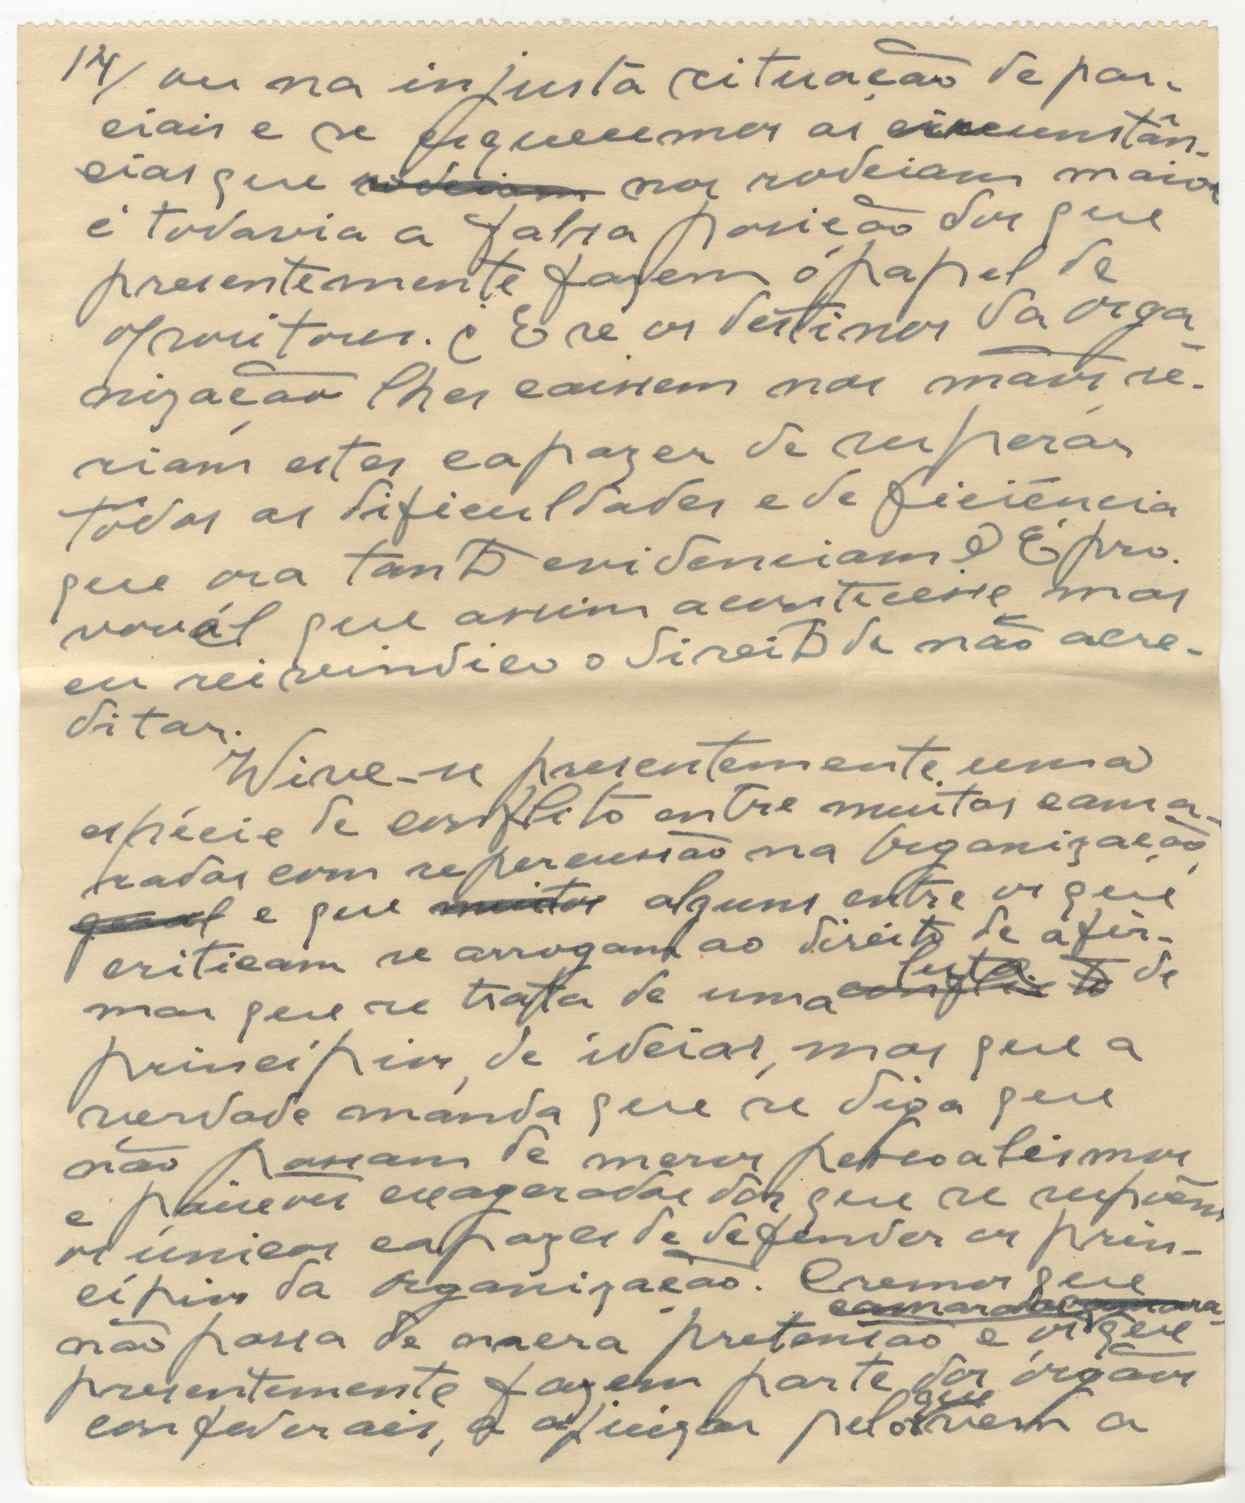 14/ ou na injusta situação de par-
ciais e se esquecemos as circunstân-
cias que rodeiam nos rodeiam maior
é todavia a falsa posição dos que
presentemente fazem o papel de
opositores. ¿E se os destinos da orga-
nização lhes caissem nas mãos se-
riam estes capazes de superár
todas as dificuldades e deficiência
que ora tanto evidenciam? É pro-
vavél que assim acontecesse mas
eu reivindico o direito de não acre-
ditar.
Vive-se presentemente uma
espécie de conflito entre muitos cama-
radas com repercussão na Organização
geral e que muitos alguns entre os que
criticam se arrogam ao direito de afir-
luta
mar que se trata de uma conflito de
princípios, de ideias, mas que a
verdade manda que se diga que
não passam de meros pessoalismos
e paixões exageradas dos que se supõem
os únicos capazes de defender os prin-
cípios da Organização. Cremos que
não passa de mera pretensão e os que
presentemente fazem parte dos órgãos
que
confederais, a ajuizar pelo vem a